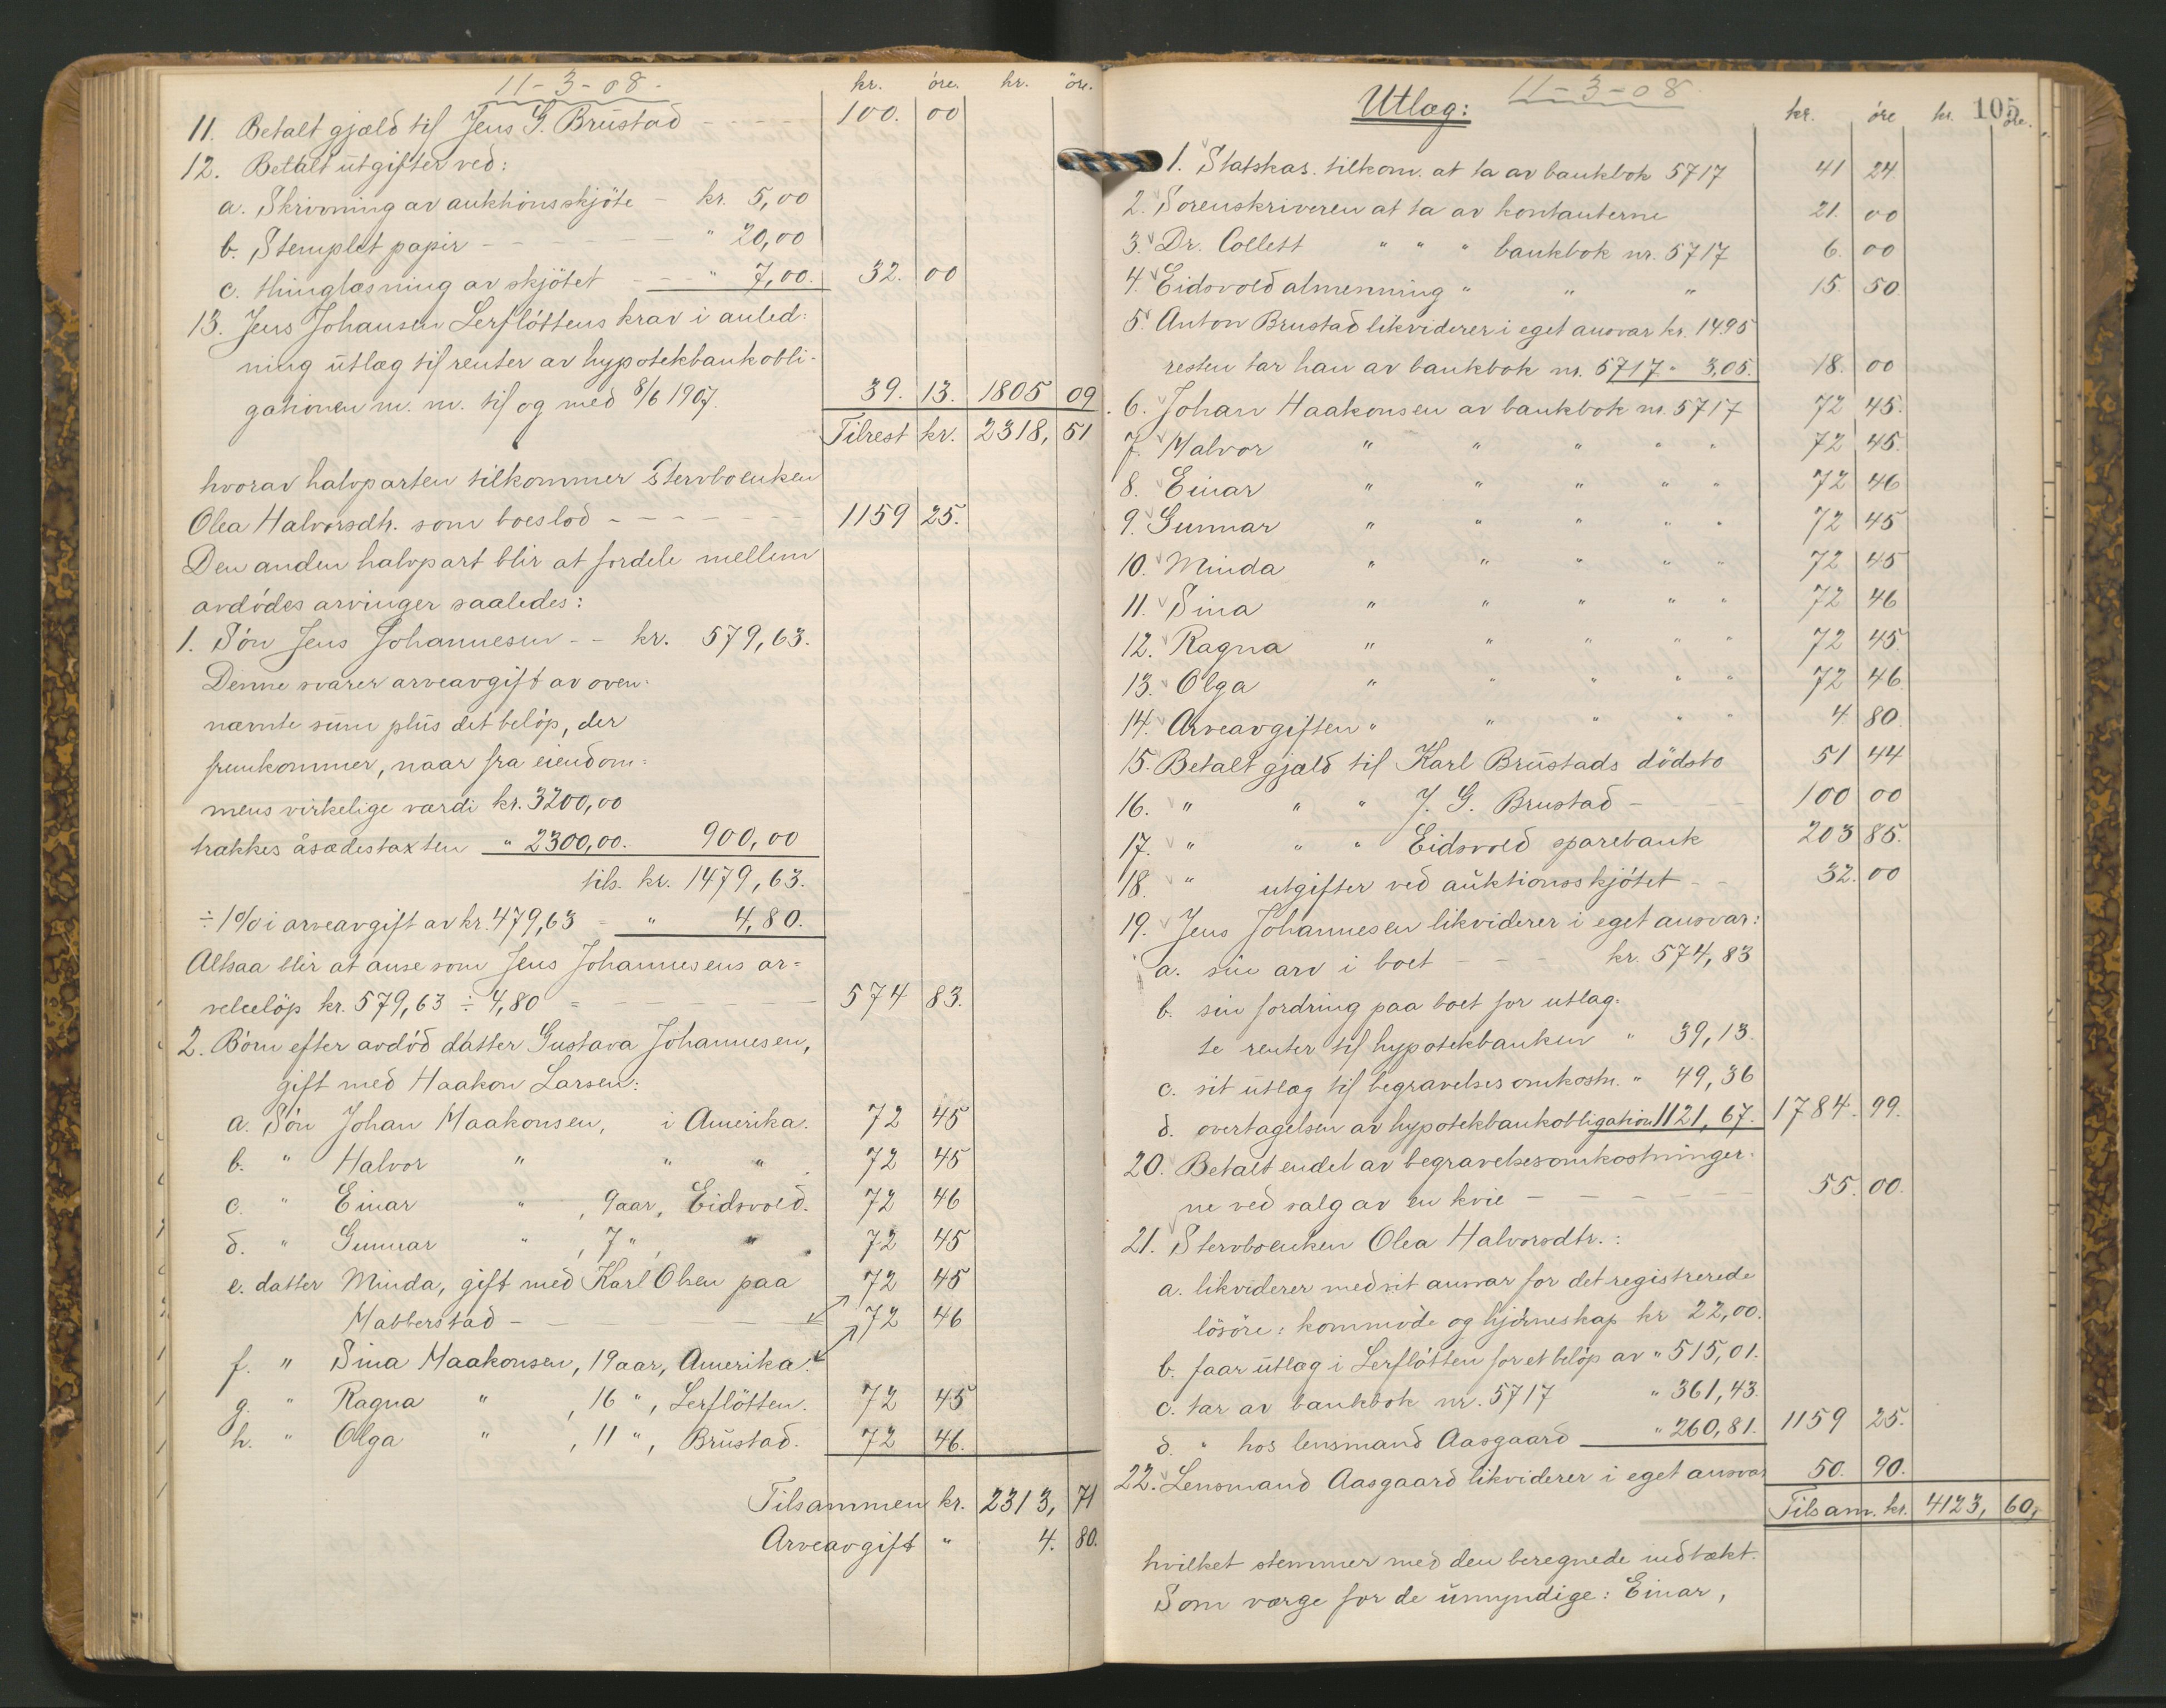 11-3-08.
kr. öre. kr. öre.
11. Betalt gjæld til Jens G. Brustad - - - - 100. 00
12. Betalt utgifter ved:
a. Skrivning av auktionsskjöte - kr. 5,00
b. Stemplet papir - - - - - - " 20,00
c. thinglæsning av skjötet - - - " 7,00. 32. 00
13. Jens Johansen Lerflöttens krav i anled=
ning utlæg til renter av hypotekbankobli-
gationen m. m. til og med 8/6 1907. 39. 13. 1805 09
Tilrest kr. 2318, 51
hvorav halvparten tilkommer Stervboenken
Olea Halvorsdtr. som boeslod - - - - - 1159 25.
Den anden halvpart blir at fordele mellem
avdödes arvinger saaledes:
1. Sön Jens Johannesen - - kr. 579,63.
Denne svarer arveavgift av oven=
nævnte sum plus det belöp, der
fremkommer, naar fra eiendom=
mens virkelige værdi kr. 3200,00
trækkes åsædestaxten " 2300,00. 900,00
tils. kr. 1479,63.
÷ 1% i arveavgift av kr. 479,63 = " 4,80.
Altsaa blir at anse som Jens Johannesens ar=
vebelöp kr. 579,63 ÷ 4,80 = - - - - - - 574 83.
2. Börn efter avdöd datter Gustava Johannesen,
gift med Haakon Larsen:
a. Sön Johan Haakonsen, i Amerika. 72 45
b. " Halvor " " " . 72 45
c. " Einar " , 9 aar, Eidsvold. 72 46
d. " Gunnar " , 7 " , " . 72 45
e. datter Minda, gift med Karl Olsen paa 72 45
Habberstad - - - - - - 72 46
f. " Sina Haakonsen, 19 aar, Amerika.
g. " Ragna " , 16 " , Lerflötten. 72 45
h. " Olga " , 11 " , Brustad. 72 46.
Tilsammen kr. 2313, 71
Arveavgift " 4. 80.
11-3-08.
105
Utlæg: kr. öre kr. öre.
1. Statskas. tilkom. at ta av bankbok 5717 41 24.
2. Sorenskriveren at ta av kontanterne 21. 00
3. Dr. Collett " " " bankbok nr. 5717 6. 00
4. Eidsvold almenning " " " 15. 50.
5. Anton Brustad likviderer i eget ansvar kr. 14.95
resten tar han av bankbok nr. 5717. " 3,05. 18. 00
6. Johan Haakonsen av bankbok nr. 5717 72 45.
7. Halvor " " " " " 72 45.
8. Einar " " " " " 72 46
9. Gunnar " " " " " 72 45
10. Minda " " " " " 72 45
11. Sina " " " " " 72 46
12. Ragna " " " " " 72 45.
13. Olga " " " " " 72 46.
14. Arveavgiften " " " " " 4. 80.
15. Betalt gjæld til Karl Brustads dödsbo 51 44
16. " " " J. G. Brustad - 100 00
17. " " " Eidsvold sparebank 203 85.
18. " utgifter ved auktionsskjötet - - 32. 00
19. Jens Johannesen likviderer i eget ansvar:
a. sin arv i boet - - - kr. 574,83
b. sin fordring paa boet for utlag=
te renter til hypotekbanken " 39,13.
c. sit utlæg til begravelsesomkostn. " 49,36
d. overtagelsen av hypotekbankobligation 1121,67. 1784. 99.
20. Betalt endel av begravelsesomkostninger=
ne ved salg av en kvie - - - - - - 55. 00.
21. Stervboenken Olea Halvorsdtr. :
a. likviderer med sit ansvar for det registrerede
lösöre: kommode og hjörneskap kr 22,00.
b. faar utlæg i Lerflötten for et belöp av " 515,01.
c. tar av bankbok nr. 5717 " 361,43.
d. " hos lensmand Aasgaard " 260,81. 1159 25.
22. Lensmand Aasgaard likviderer i eget ansvar 50. 90.
Tilsam. kr. 4123, 60,
hvilket stemmer med den beregnede indtækt.
Som værge for de umyndige: Einar,